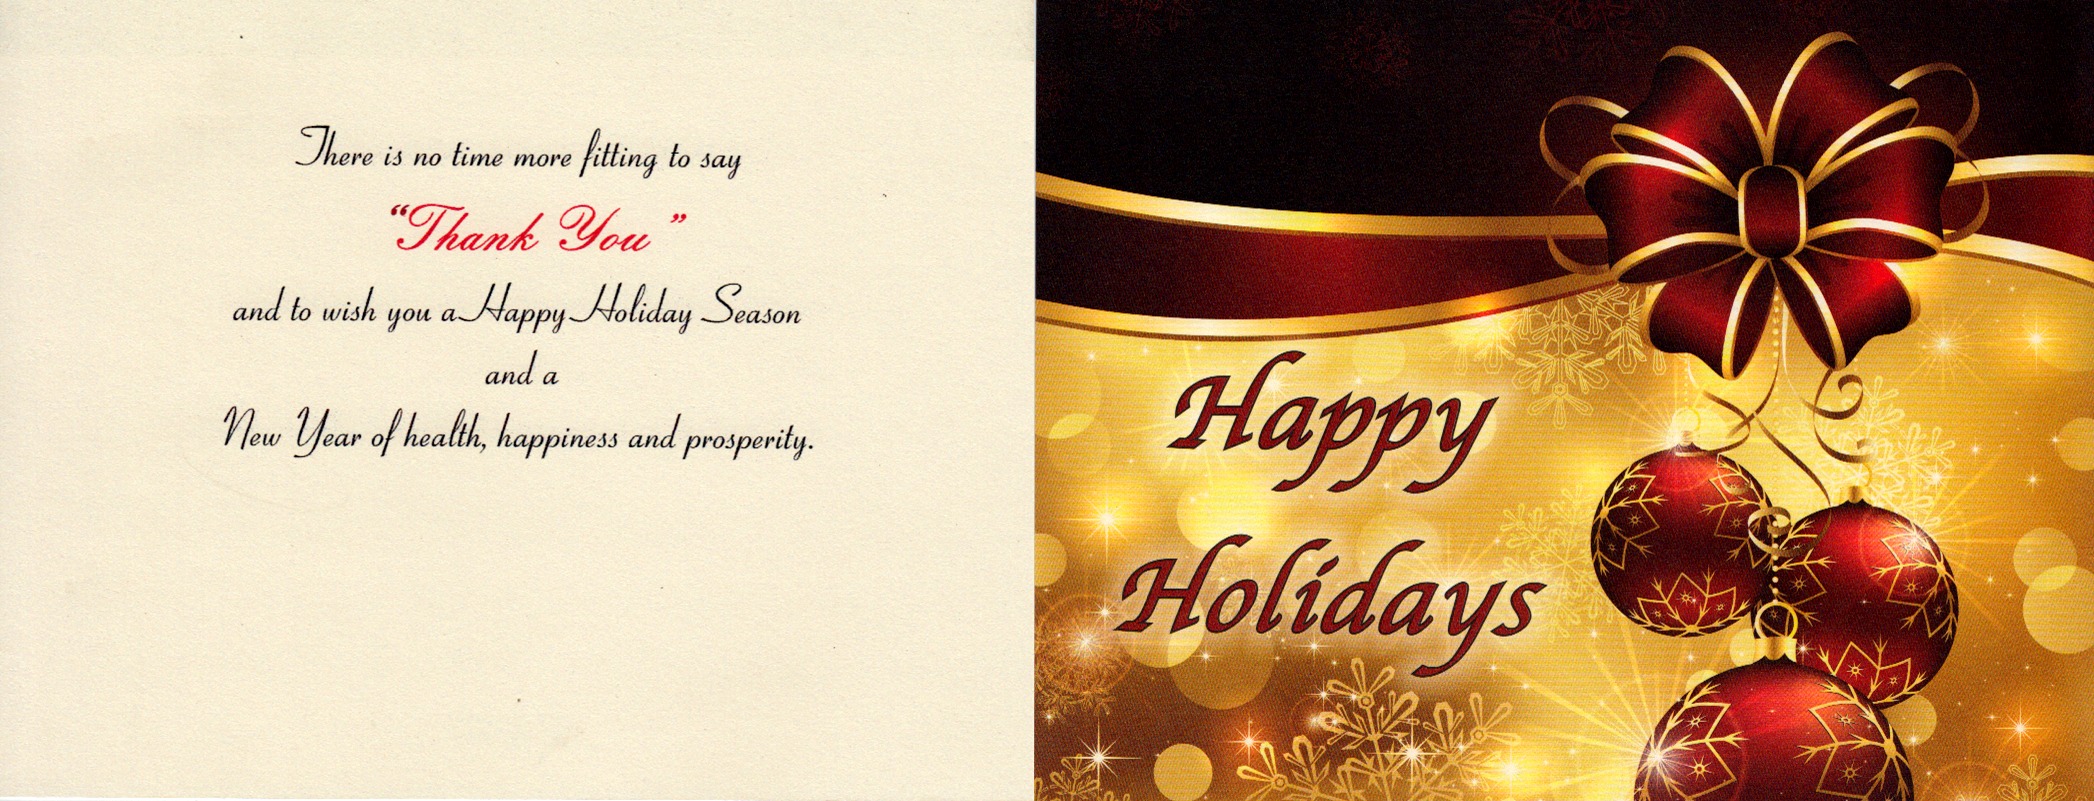 There is no time more fitting to say
“Thank You”
and to wish you a Happy Holiday Season
and a
New Year of health, happiness and prosperity.
Happy
Holidays